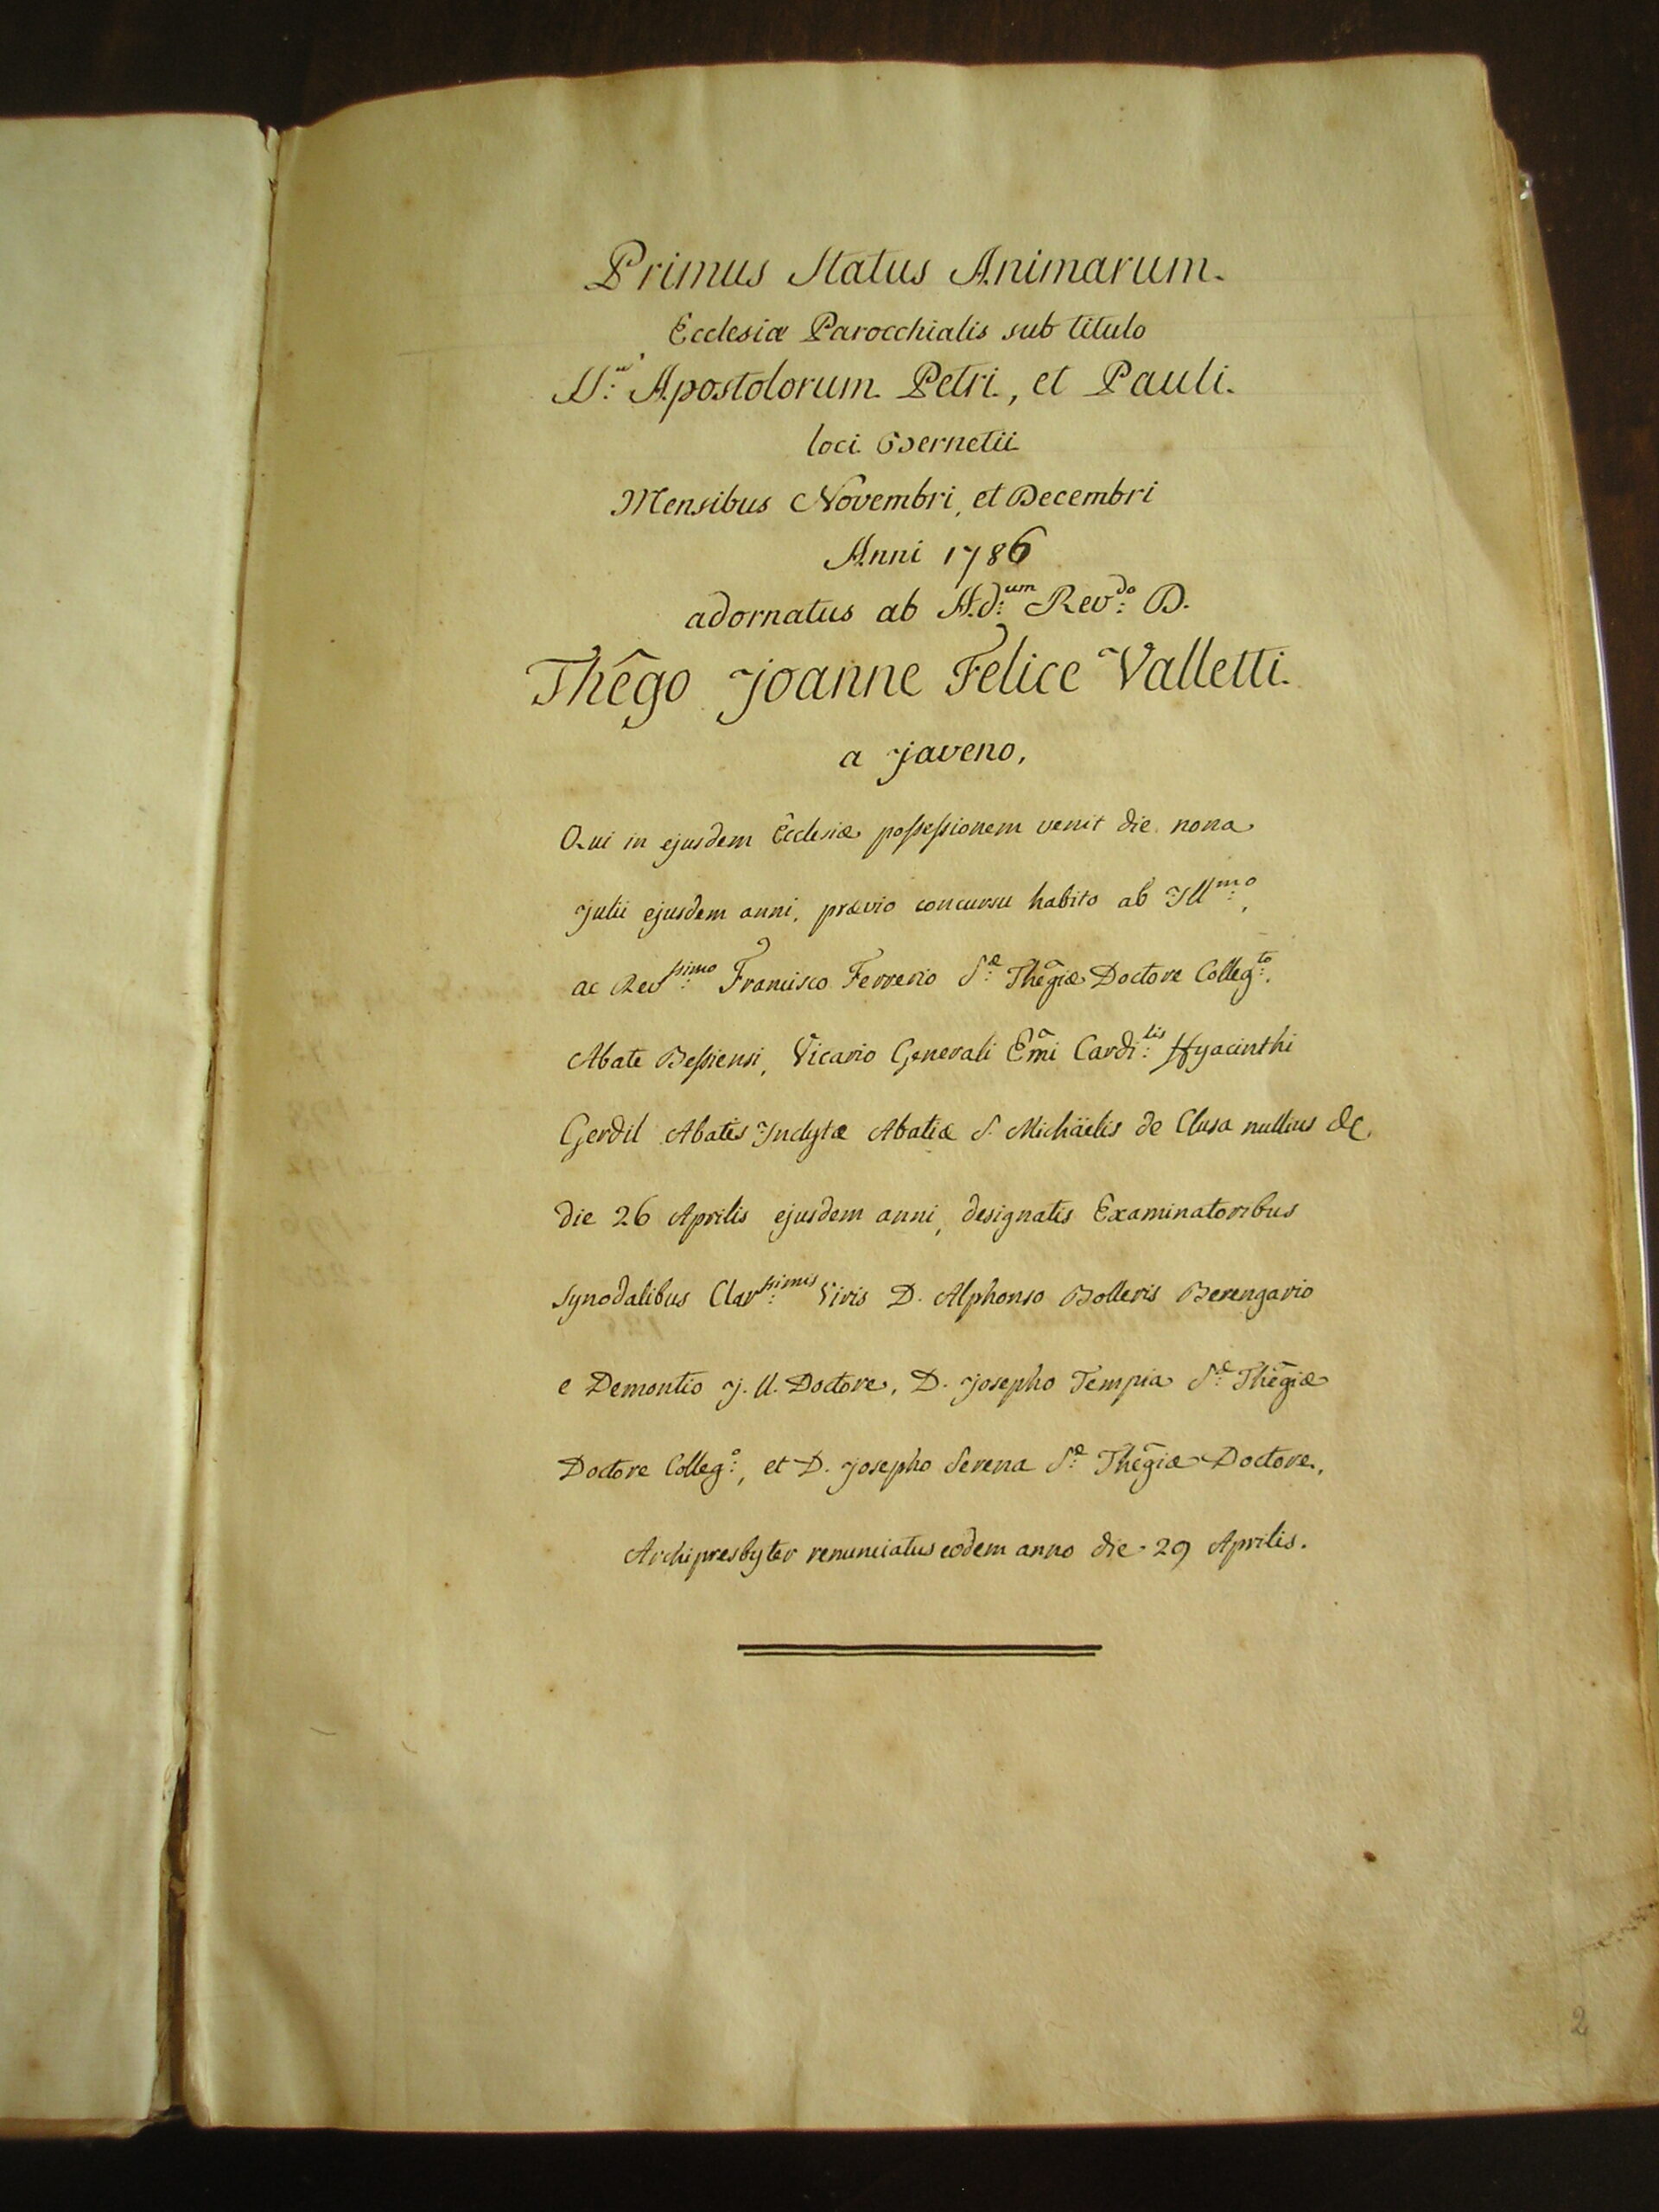 Primus Status Animarum.
Ecclesiæ Parocchialis sub titulo
Apostolorum Petri, et Pauli.
loci Bernetii
Mensibus Novembri, et Decembri
Anni 1786
adornatus ab Ad:um Rev:do D.
Thêgo Joanne Felice Valletti.
a Javeno,
Qui in ejusdem Ecclesiæ possessionem venit die nona
Julii ejusdem anni, prævio concursu habito ab Ill:mo,
ac Rev:ssimo Francisco Ferrerio S:æ Thẽgiæ Doctore Colleg:to.
Abate Bessiensi, Vicario Generali Em̃i Cardi:lis Hyacinthi
Gerdil Abatis Inclytæ Abatiæ S. Michäelis de Clusa nullius &c.
die 26 Aprilis ejusdem anni, designatis Examinatoribus
Synodalibus Clar:ssimis Viris D. Alphonso Bolleris Berengario
e Demontio J. U. Doctore, D. Josepho Tempia S:æ Thẽgiæ
Doctore Colleg:o, et D. Josepho Serena S:æ Thẽgiæ Doctore,
Archipresbyter renunciatus eodem anno die 29 Aprilis.
2